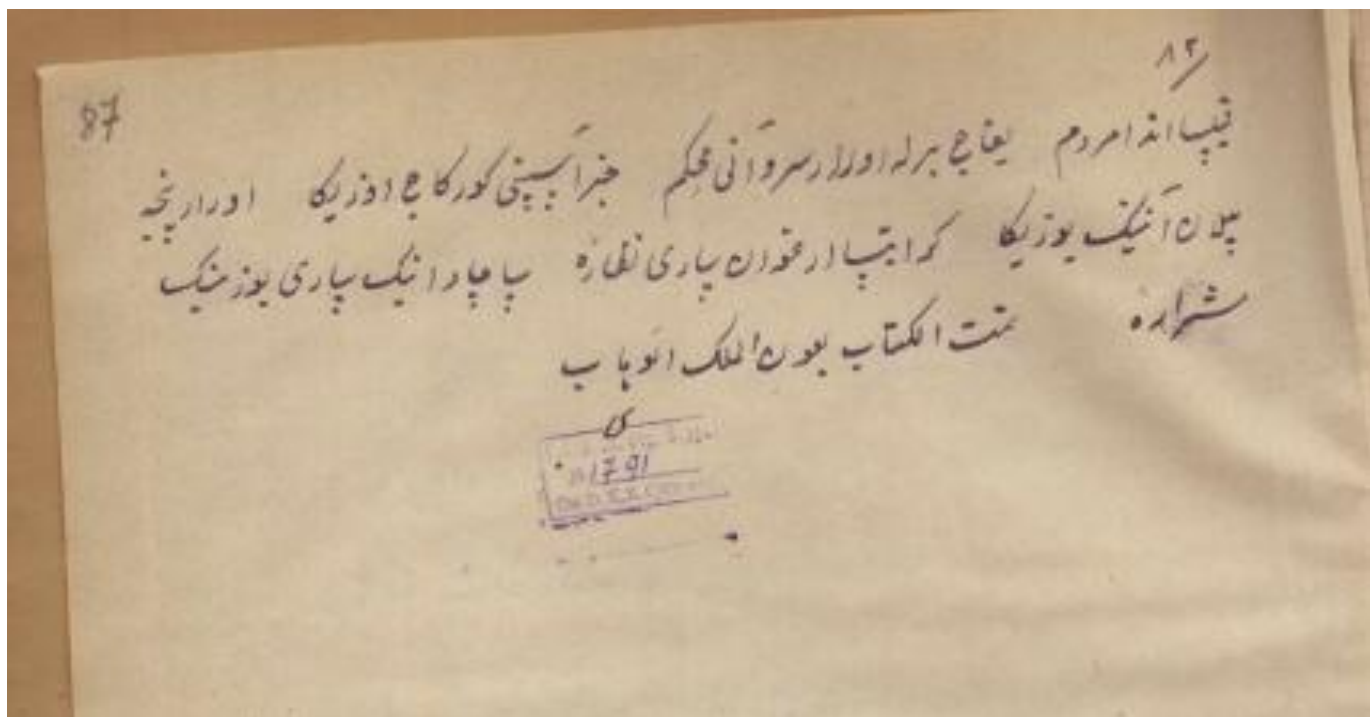 ٨٢
87
قیلیب اندا مردم یغاچ برله اورار سروآنی محکم خبر آپسینی کورکاچ اوزیکا اورار پنجه
بیلان آنینک یوزیکا کرایتیب ارغوان یاری نظاره یاچار انینک یاری یوزمینک
شراره تمت الکتاب بعون الملک الوهاب
1791